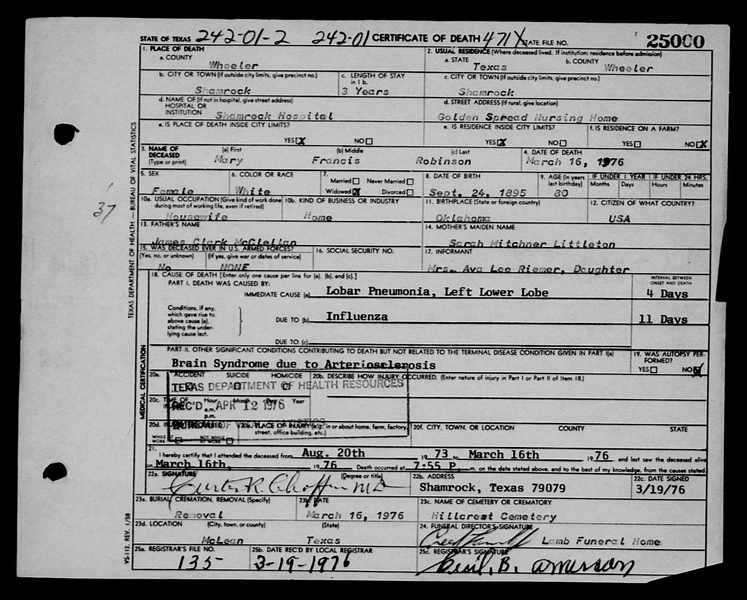 STATE OF TEXAS 242-01-2 242-01 CERTIFICATE OF DEATH 471X STATE FILE NO. 25000
1. PLACE OF DEATH
a. COUNTY
Wheeler
2. USUAL RESIDENCE (Where deceased lived. If institution: residence before admission)
a. STATE
Texas
b. COUNTY
Wheeler
b. CITY OR TOWN (If outside city limits, give precinct no.)
Shamrock
c. LENGTH OF STAY in 1 b.
3 Years
c. CITY OR TOWN (If outside city limits, give precinct no.)
Shamrock
d. NAME OF (If not in hospital, give street address)
HOSPITAL OR
INSTITUTION
Shamrock Hospital
d. STREET ADDRESS (If rural, give location)
Golden Spread Nursing Home
e. IS PLACE OF DEATH INSIDE CITY LIMITS?
YES X NO
e. IS RESIDENCE INSIDE CITY LIMITS?
YES X NO
f. IS RESIDENCE ON A FARM?
YES NO X
3. NAME OF
DECEASED
(Type or print)
(a) First
Mary
(b) Middle
Francis
(c) Last
Robinson
4. DATE OF DEATH
March 16, 1976
5. SEX
Female
6. COLOR OR RACE
White
7.
Married Never Married
Widowed X Divorced
8. DATE OF BIRTH
Sept. 24, 1895
9. AGE (In years last birthday)
80
IF UNDER 1 YEAR
Months Days
IF UNDER 24 HRS.
Hours Minutes
10a. USUAL OCCUPATION (Give kind of work done
during most of working life, even if retired)
Housewife
10b. KIND OF BUSINESS OR INDUSTRY
Home
11. BIRTHPLACE (State or foreign country)
Oklahoma
12. CITIZEN OF WHAT COUNTRY?
USA
13. FATHER'S NAME
James Clark McClellan
14. MOTHER'S MAIDEN NAME
Sarah Mitchner Littleton
15. WAS DECEASED EVER IN U.S. ARMED FORCES?
(Yes, no, or unknown) (If yes, give war or dates of service)
No NONE
16. SOCIAL SECURITY NO.
17. INFORMANT
Mrs. Ava Lee Riemer, Daughter
18. CAUSE OF DEATH [Enter only one cause per line for (a), (b), and (c).]
PART I. DEATH WAS CAUSED BY:
IMMEDIATE CAUSE (a) Lobar Pneumonia, Left Lower Lobe
INTERVAL BETWEEN
ONSET AND DEATH
4 Days
Conditions, if any,
which gave rise to
above cause (a),
stating the under-
lying cause last.
DUE TO (b) Influenza
11 Days
DUE TO (c)
PART II. OTHER SIGNIFICANT CONDITIONS CONTRIBUTING TO DEATH BUT NOT RELATED TO THE TERMINAL DISEASE CONDITION GIVEN IN PART I(a)
Brain Syndrome due to Arteriosclerosis
19. WAS AUTOPSY PERFORMED?
YES NO X
20a. ACCIDENT SUICIDE HOMICIDE
20b. DESCRIBE HOW INJURY OCCURRED. (Enter nature of injury in Part I or Part II of item 18.)
TEXAS DEPARTMENT OF HEALTH RESOURCES
20c. TIME OF Hour Day Year
REC'D APR 12 1976
20d.
WHILE AT WORK NOT WHILE AT WORK
20e. PLACE OF INJURY (e.g. in or about home, farm, factory,
street, office building, etc.)
20f. CITY, TOWN, OR LOCATION COUNTY STATE
21.
I hereby certify that I attended the deceased from Aug. 20th 1973 to March 16th 1976 and last saw the deceased alive
March 16th, 1976 Death occurred at 7:55 P m., on the date stated above, and to the best of my knowledge, from the causes stated.
22a. SIGNATURE (Degree or title)
22b. ADDRESS
Shamrock, Texas 79079
22c. DATE SIGNED
3/19/76
23a. BURIAL, CREMATION, REMOVAL (Specify)
Removal
23b. DATE
March 16, 1976
23c. NAME OF CEMETERY OR CREMATORY
Hillcrest Cemetery
23d. LOCATION (City, town, or county) (State)
McLean Texas
24. FUNERAL DIRECTOR'S SIGNATURE
Lamb Funeral Home
25a. REGISTRAR'S FILE NO.
135
25b. DATE REC'D BY LOCAL REGISTRAR
3-19-1976
25c. REGISTRAR'S SIGNATURE
TEXAS DEPARTMENT OF HEALTH — BUREAU OF VITAL STATISTICS
MEDICAL CERTIFICATION
VS-112, REV. 1/58
37